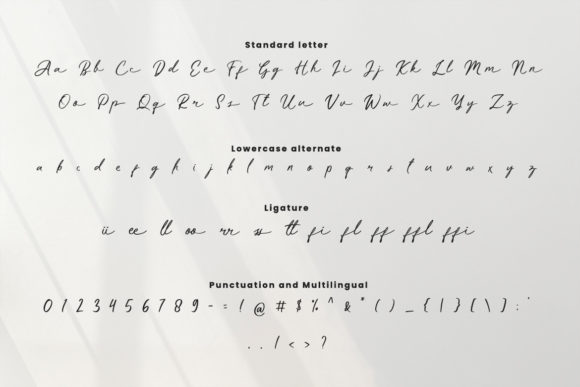 Standard letter
Aa Bb Cc Dd Ee Ff Gg Hh Ii Jj Kk Ll Mm Nn
Oo Pp Qq Rr Ss Tt Uu Vv Ww Xx Yy Zz
Lowercase alternate
a b c d e f g h i j k l m n o p q r s t u v w x y z
Ligature
ii ee ll oo rr ss tt fi fl ff ffl ffi
Punctuation and Multilingual
0 1 2 3 4 5 6 7 8 9 - = ! @ # $ % ^ & * ( ) _ { | } [ \ ] : '
. . / < > ?